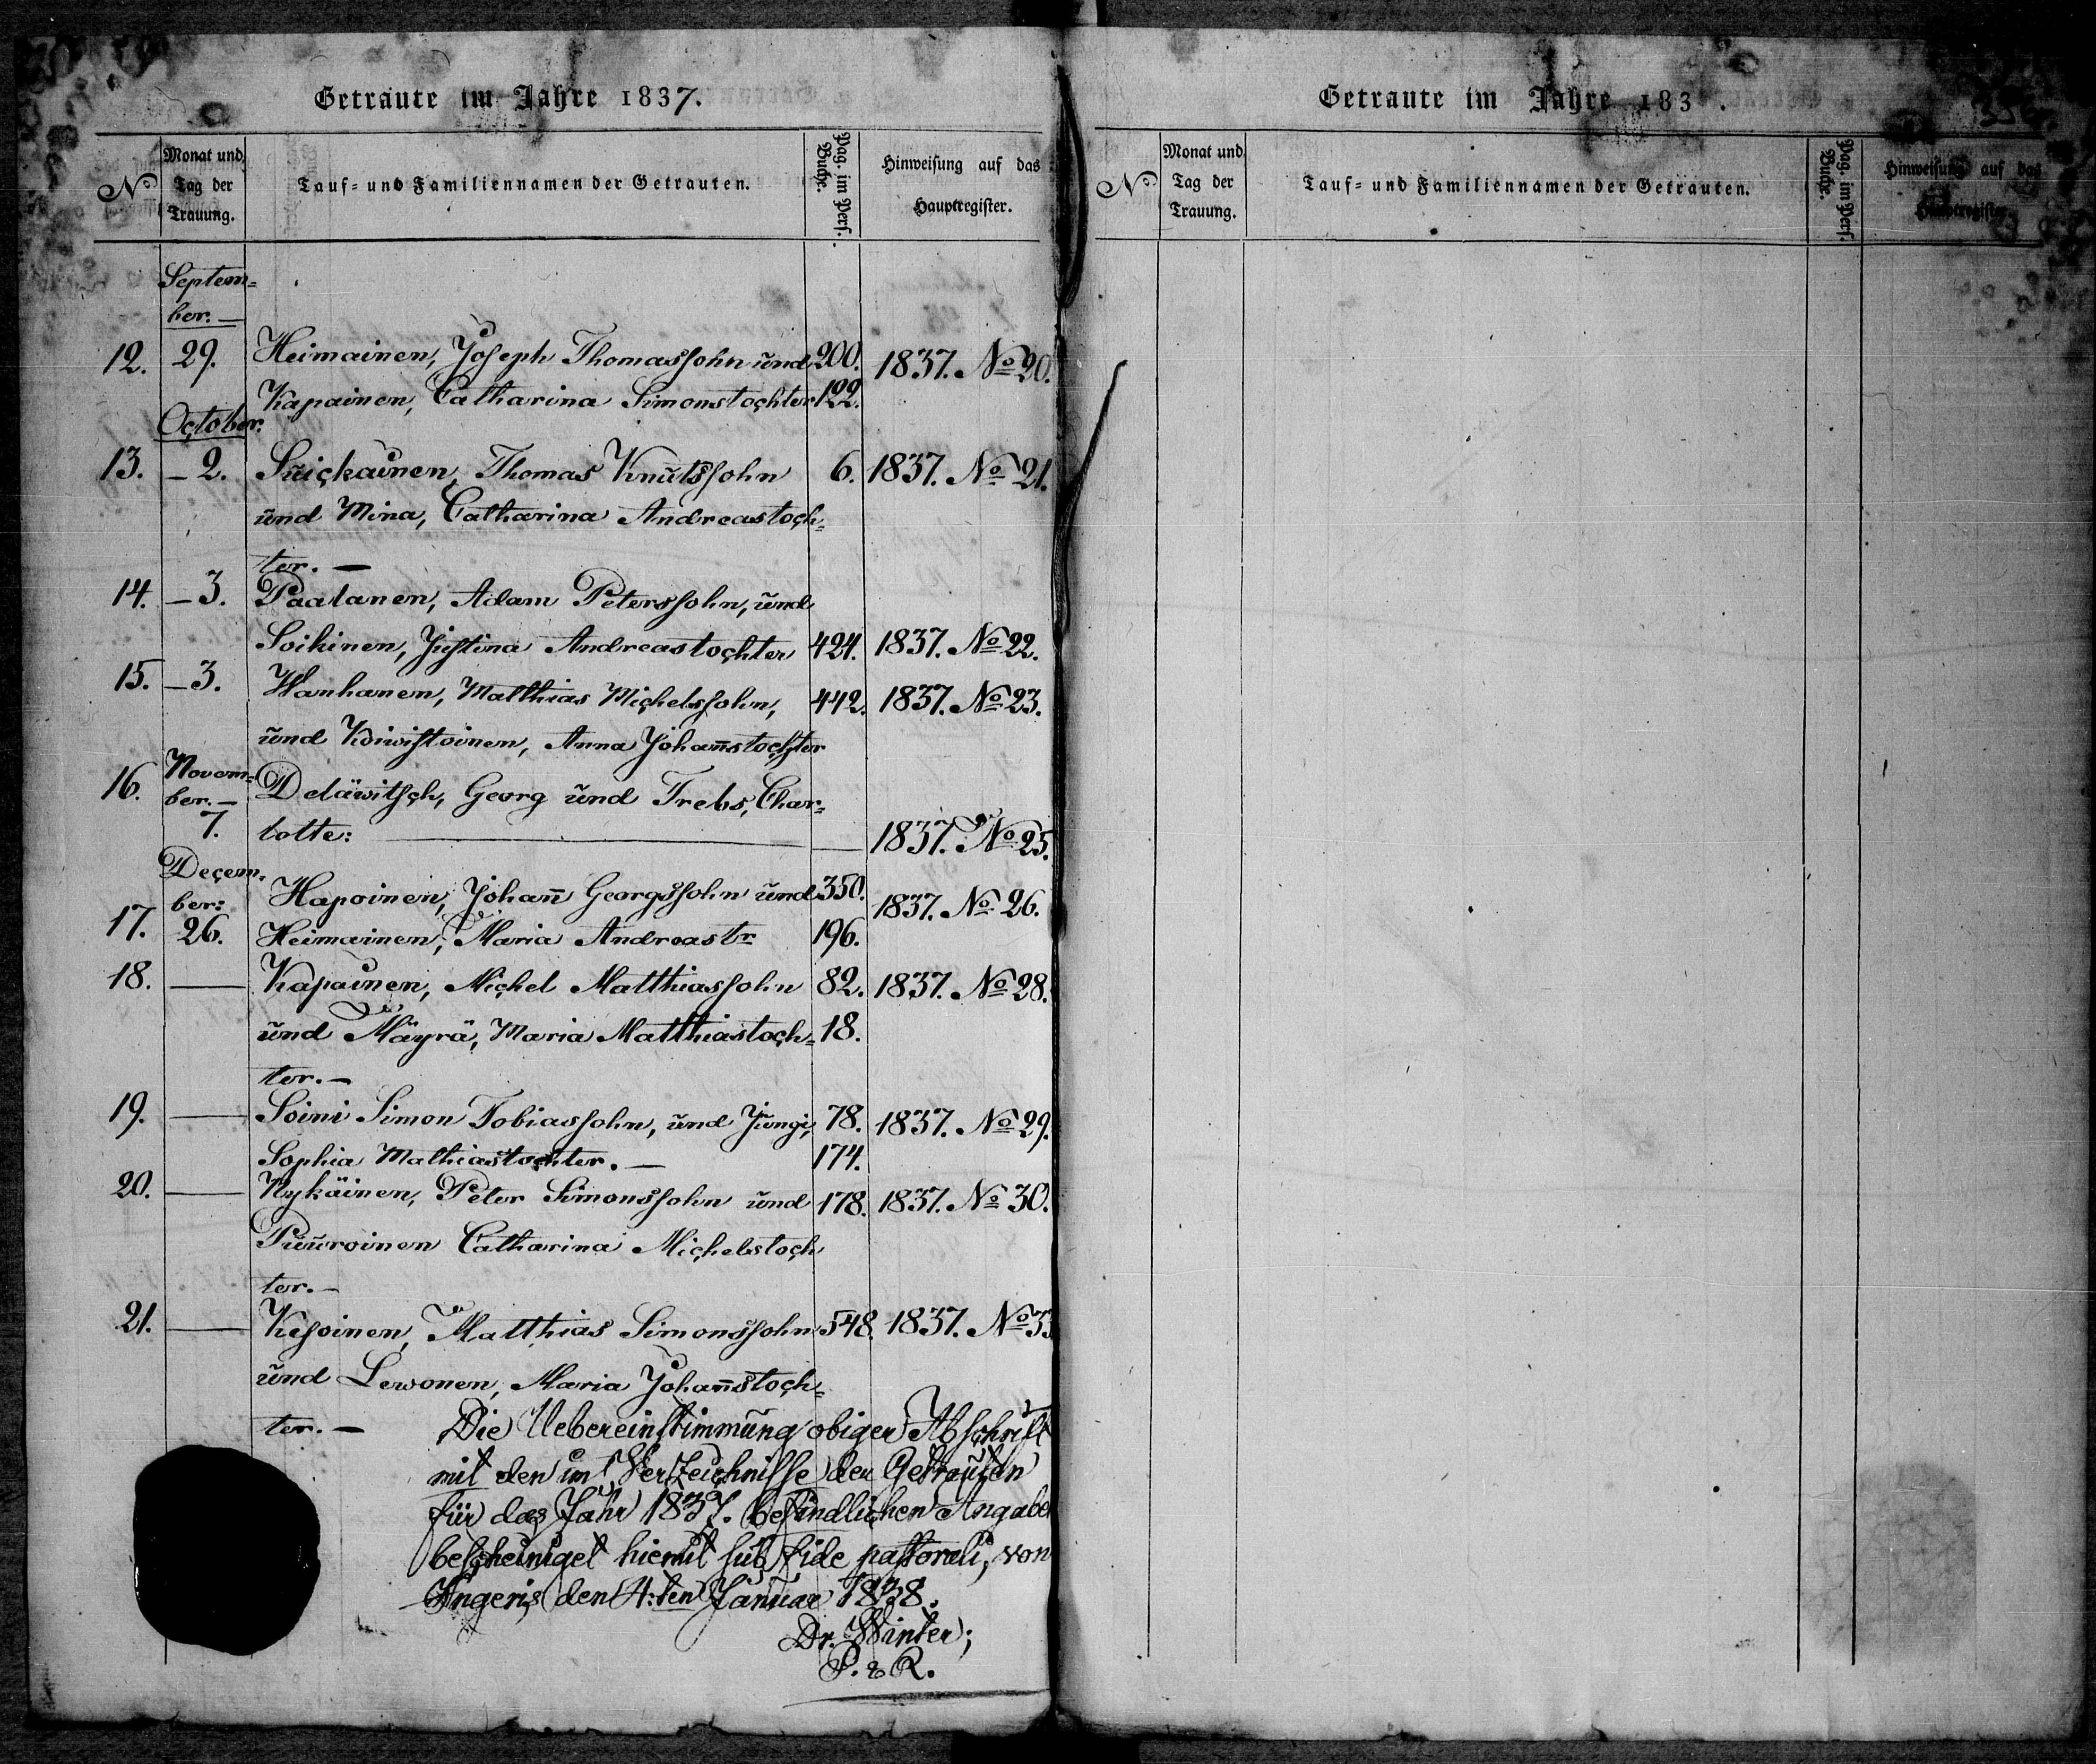 Getraute im Jahre 1837.
No Monat und Tag der Trauung. Tauf- und Familiennamen der Getrauten. Pag. im Pers. Buche. Hinweisung auf das Hauptregister.
Septem-
ber. —
12. 29. Heimainen, Joseph Thomassohn und 200. 1837. No 20.
Kapainen, Catharina Simonstochter 122.
October.
13. — 2. Suickainen, Thomas Knutssohn 6. 1837. No 21.
und Mina, Catharina Andreastoch-
ter. —
14. — 3. Paatanen, Adam Peterssohn, und
Soikinen, Justina Andreastochter 424. 1837. No 22.
15. — 3. Wanhanen, Matthias Michelssohn, 442. 1837. No 23.
und Koiwistoinen, Anna Johannstochter
16. Novem-
ber. — Deläwitsch, Georg und Trebs, Char-
7. lotte: — 1837. No 25.
Decem-
ber: Hapoinen, Johann Georgssohn und 350. 1837. No 26.
17. 26. Heimainen, Maria Andreastr 196.
18. — Kapainen, Michel Matthiassohn 82. 1837. No 28.
und Mäyrä, Maria Matthiastoch- 18.
ter. —
19. — Soini Simon Tobiassohn, und Jungi, 78. 1837. No 29.
Sophia Mathiastochter. — 174.
20. — Kykäinen, Peter Simonssohn und 178. 1837. No 30.
Puuroinen Catharina Michelstoch
ter. —
21. — Kesoinen, Matthias Simonssohn 548. 1837. No
und Lewonen, Maria Johannstoch-
ter. — Die Uebereinstimmung obiger Abschrift
mit den im Verzeichnisse der Getrauten
für das Jahr 1837. befindlichen Angabe
bescheiniget hiemit sub fide pastorali, von
Angeris den 4:ten Januar 1838.
Dr. Winter;
P. & R.
Getraute im Jahre 183 .
356.
No Monat und Tag der Trauung. Tauf- und Familiennamen der Getrauten. Pag. im Pers. Buche. Hinweisung auf das Hauptregister.